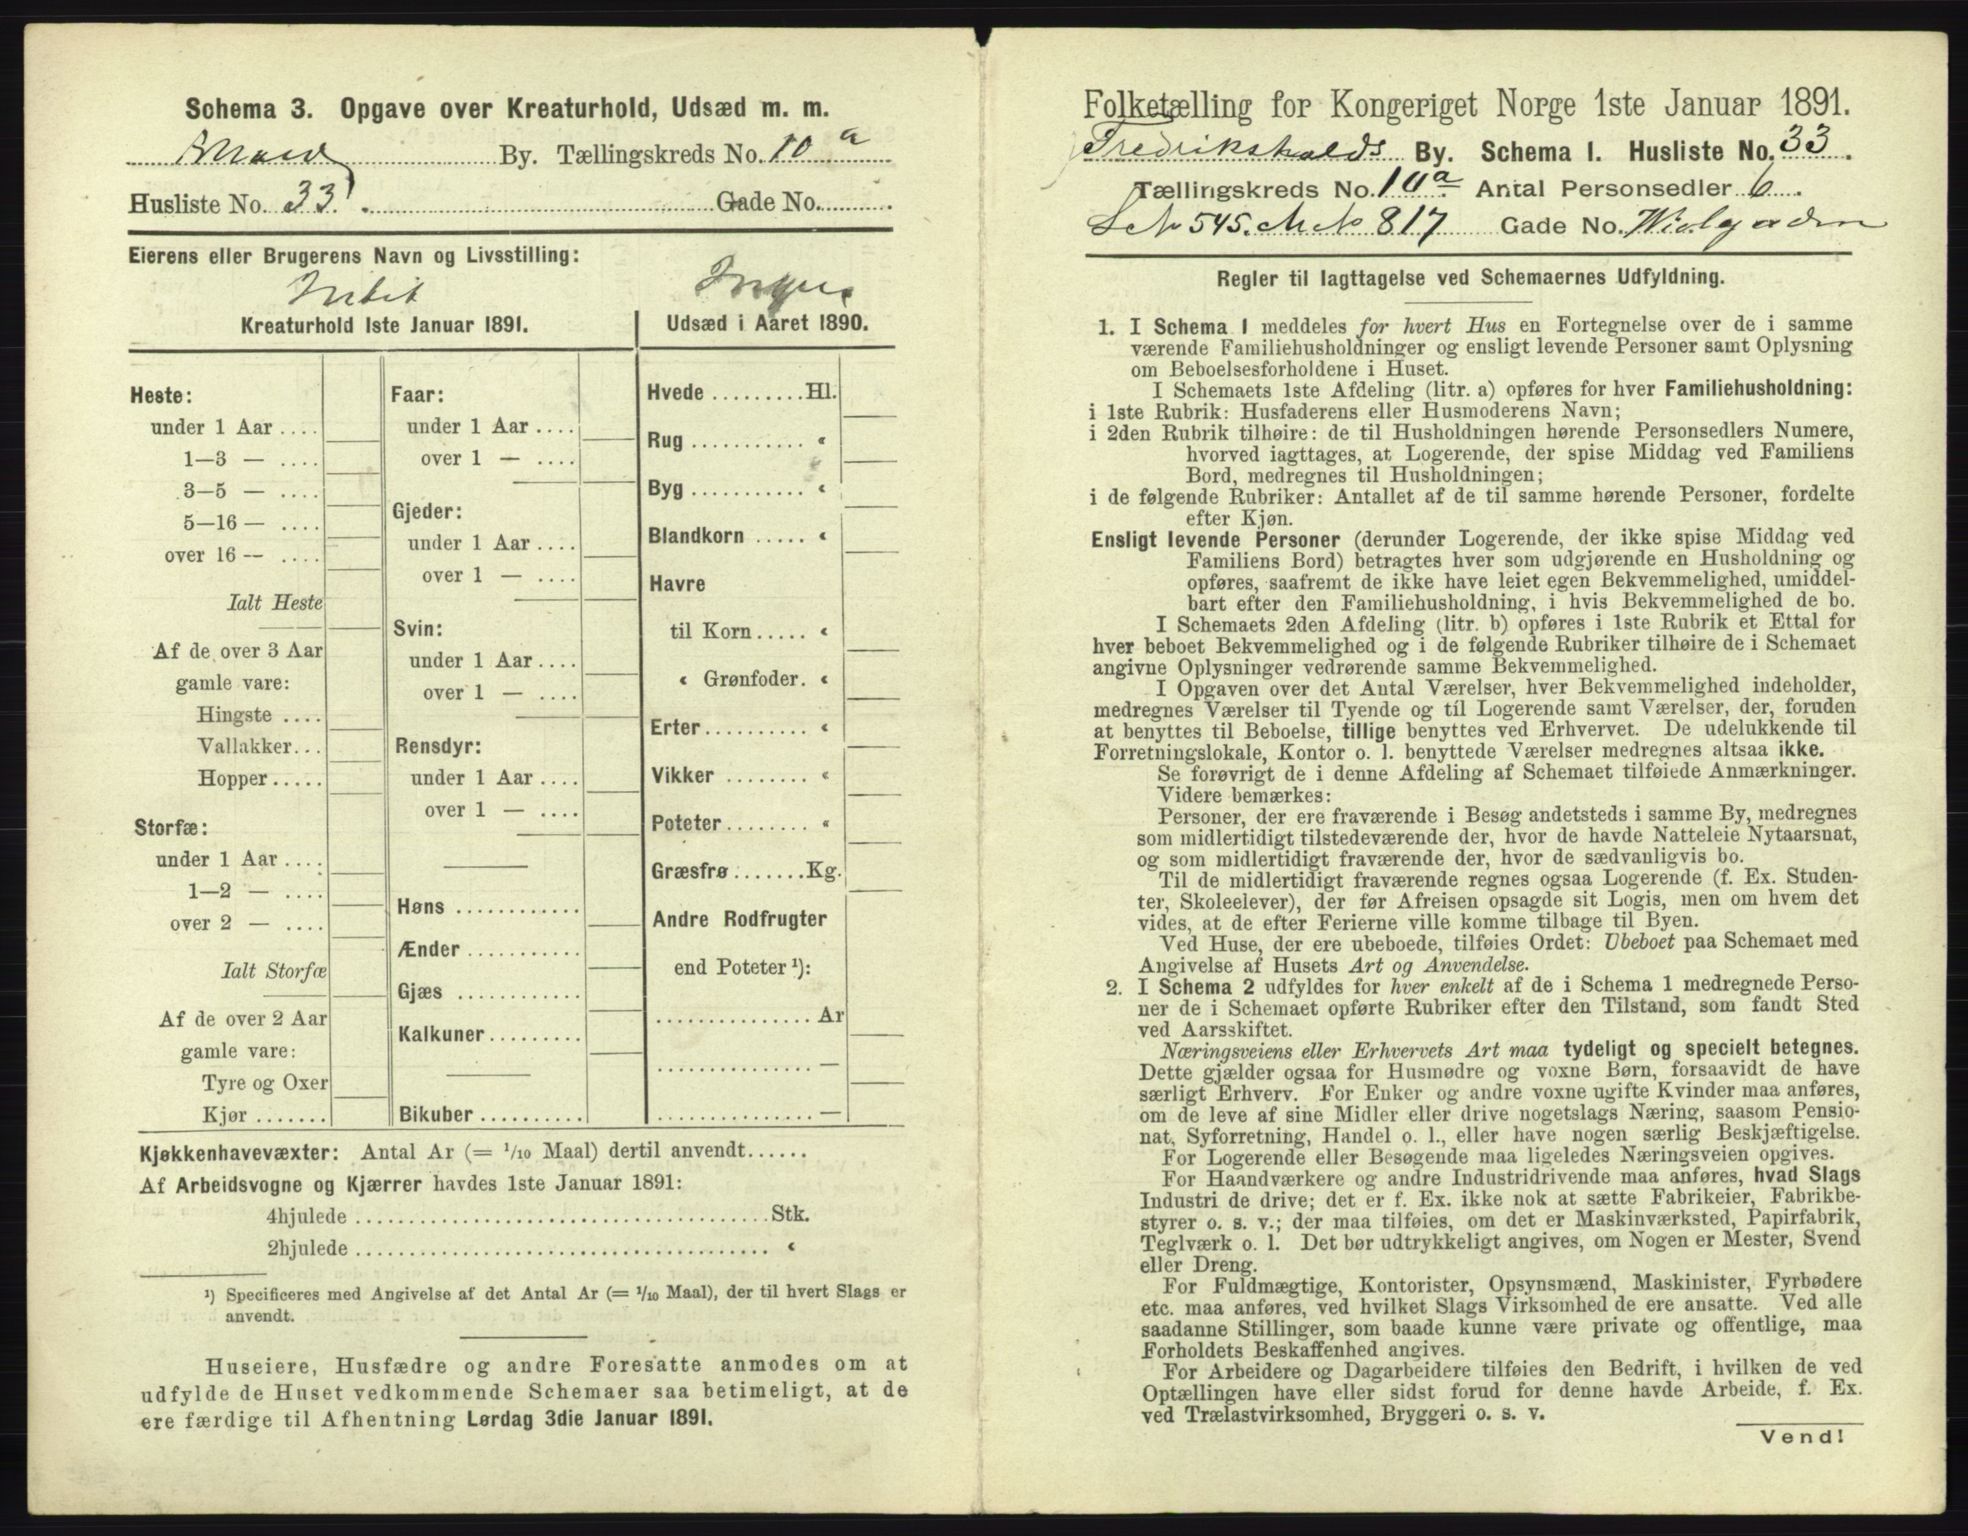 Schema 3. Opgave over Kreaturhold, Udsæd m. m.
By. Tællingskreds No. 10 a
Husliste No. 33. Gade No.
Eierens eller Brugerens Navn og Livsstilling:
Intet
Ingen
Kreaturhold 1ste Januar 1891.
Udsæd i Aaret 1890.
Heste:
under 1 Aar ....
1—3 — ....
3—5 — ....
5—16 — ....
over 16 — ....
Ialt Heste
Af de over 3 Aar
gamle vare:
Hingste ....
Vallakker...
Hopper.....
Storfæ:
under 1 Aar ....
1—2 — ....
over 2 — ....
Ialt Storfæ
Af de over 2 Aar
gamle vare:
Tyre og Oxer
Kjør .......
Faar:
under 1 Aar ....
over 1 — ....
Gjeder:
under 1 Aar ....
over 1 — ....
Svin:
under 1 Aar ....
over 1 — ....
Rensdyr:
under 1 Aar ....
over 1 — ....
Høns ............
Ænder ..........
Gjæs ............
Kalkuner.........
Bikuber ..........
Hvede .........Hl.
Rug ........... «
Byg ........... «
Blandkorn ..... «
Havre
til Korn ..... «
« Grønfoder. «
Erter .......... «
Vikker ........ «
Poteter ........ «
Græsfrø.......Kg.
Andre Rodfrugter
end Poteter ¹):
............... Ar
............... —
............... —
Kjøkkenhavevæxter: Antal Ar (= 1/10 Maal) dertil anvendt......
Af Arbeidsvogne og Kjærrer havdes 1ste Januar 1891:
4hjulede ...................................... Stk.
2hjulede ...................................... «
¹) Specificeres med Angivelse af det Antal Ar (= 1/10 Maal), der til hvert Slags er
anvendt.
Huseiere, Husfædre og andre Foresatte anmodes om at
udfylde de Huset vedkommende Schemaer saa betimeligt, at de
ere færdige til Afhentning Lørdag 3die Januar 1891.
Folketælling for Kongeriget Norge 1ste Januar 1891.
Fredrikshalds By. Schema 1. Husliste No. 33.
Tællingskreds No. 10 a Antal Personsedler 6.
545. M No 817 Gade No.
Regler til Iagttagelse ved Schemaernes Udfyldning.
1. I Schema 1 meddeles for hvert Hus en Fortegnelse over de i samme
værende Familiehusholdninger og ensligt levende Personer samt Oplysning
om Beboelsesforholdene i Huset.
I Schemaets 1ste Afdeling (litr. a) opføres for hver Familiehusholdning:
i 1ste Rubrik: Husfaderens eller Husmoderens Navn;
i 2den Rubrik tilhøire: de til Husholdningen hørende Personsedlers Numere,
hvorved iagttages, at Logerende, der spise Middag ved Familiens
Bord, medregnes til Husholdningen;
i de følgende Rubriker: Antallet af de til samme hørende Personer, fordelte
efter Kjøn.
Ensligt levende Personer (derunder Logerende, der ikke spise Middag ved
Familiens Bord) betragtes hver som udgjørende en Husholdning og
opføres, saafremt de ikke have leiet egen Bekvemmelighed, umiddel-
bart efter den Familiehusholdning, i hvis Bekvemmelighed de bo.
I Schemaets 2den Afdeling (litr. b) opføres i 1ste Rubrik et Ettal for
hver beboet Bekvemmelighed og i de følgende Rubriker tilhøire de i Schemaet
angivne Oplysninger vedrørende samme Bekvemmelighed.
I Opgaven over det Antal Værelser, hver Bekvemmelighed indeholder,
medregnes Værelser til Tyende og til Logerende samt Værelser, der, foruden
at benyttes til Beboelse, tillige benyttes ved Erhvervet. De udelukkende til
Forretningslokale, Kontor o. l. benyttede Værelser medregnes altsaa ikke.
Se forøvrigt de i denne Afdeling af Schemaet tilføiede Anmærkninger.
Videre bemærkes:
Personer, der ere fraværende i Besøg andetsteds i samme By, medregnes
som midlertidigt tilstedeværende der, hvor de havde Natteleie Nytaarsnat,
og som midlertidigt fraværende der, hvor de sædvanligvis bo.
Til de midlertidigt fraværende regnes ogsaa Logerende (f. Ex. Studen-
ter, Skoleelever), der før Afreisen opsagde sit Logis, men om hvem det
vides, at de efter Ferierne ville komme tilbage til Byen.
Ved Huse, der ere ubeboede, tilføies Ordet: Ubeboet paa Schemaet med
Angivelse af Husets Art og Anvendelse.
2. I Schema 2 udfyldes for hver enkelt af de i Schema 1 medregnede Perso-
ner de i Schemaet opførte Rubriker efter den Tilstand, som fandt Sted
ved Aarsskiftet.
Næringsveiens eller Erhvervets Art maa tydeligt og specielt betegnes.
Dette gjælder ogsaa for Husmødre og voxne Børn, forsaavidt de have
særligt Erhverv. For Enker og andre voxne ugifte Kvinder maa anføres,
om de leve af sine Midler eller drive nogetslags Næring, saasom Pensio-
nat, Syforretning, Handel o. l., eller have nogen særlig Beskjæftigelse.
For Logerende eller Besøgende maa ligeledes Næringsveien opgives.
For Haandværkere og andre Industridrivende maa anføres, hvad Slags
Industri de drive; det er f. Ex. ikke nok at sætte Fabrikeier, Fabrikbe-
styrer o. s. v.; der maa tilføies, om det er Maskinværksted, Papirfabrik,
Teglværk o. l. Det bør udtrykkeligt angives, om Nogen er Mester, Svend
eller Dreng.
For Fuldmægtige, Kontorister, Opsynsmænd, Maskinister, Fyrbødere
etc. maa anføres, ved hvilket Slags Virksomhed de ere ansatte. Ved alle
saadanne Stillinger, som baade kunne være private og offentlige, maa
Forholdets Beskaffenhed angives.
For Arbeidere og Dagarbeidere tilføies den Bedrift, i hvilken de ved
Optællingen have eller sidst forud for denne havde Arbeide, f. Ex.
ved Trælastvirksomhed, Bryggeri o. s. v.
Vend!